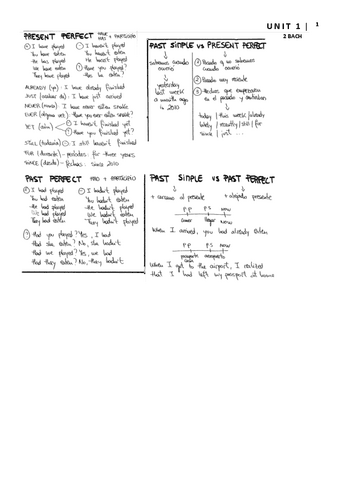 UNIT 1 | 1
2 BACH
PRESENT PERFECT HAVE HAS + PARTICIPIO
+ I have played
You have eaten
He has played
We have eaten
They have played
- I haven't played
You haven't eaten
He hasn't played
? Have you played?
Has he eaten?
ALREADY (ya): I have already finished
JUST (acabar de): I have just arrived
NEVER (nunca): I have never eaten
EVER (alguna vez): Have you ever eaten
YET (aún) - I haven't finished yet
? Have you finished yet?
STILL (todavía) - I still haven't finished
FOR (durante) - periodos: for three years
SINCE (desde) - fechas: since 2010
PAST SIMPLE vs PRESENT PERFECT
sabemos cuando ocurrió
yesterday
last week
a month ago
in 2010
no sabemos cuando ocurrió
Pasado muy reciente
Hechos que empezaron en el pasado y continúan
today / this week / already
lately / recently / still / for
since / just ...
PAST PERFECT HAD + PARTICIPIO
+ I had played
You had eaten
He had played
We had played
They had eaten
- I hadn't played
You hadn't eaten
He hadn't played
We hadn't eaten
They hadn't played
? Had you played? Yes, I had
Had she eaten? No, she hadn't
Had we played? Yes, we had
Had they eaten? No, they hadn't
PAST SIMPLE vs PAST PERFECT
+ cercano al presente
+ alejado presente
P.P P.S now
comer llegar now
When I arrived, you had already eaten
P.P P.S now
pasaporte aeropuerto
casa
When I got to the airport, I realized
that I had left my passport at home